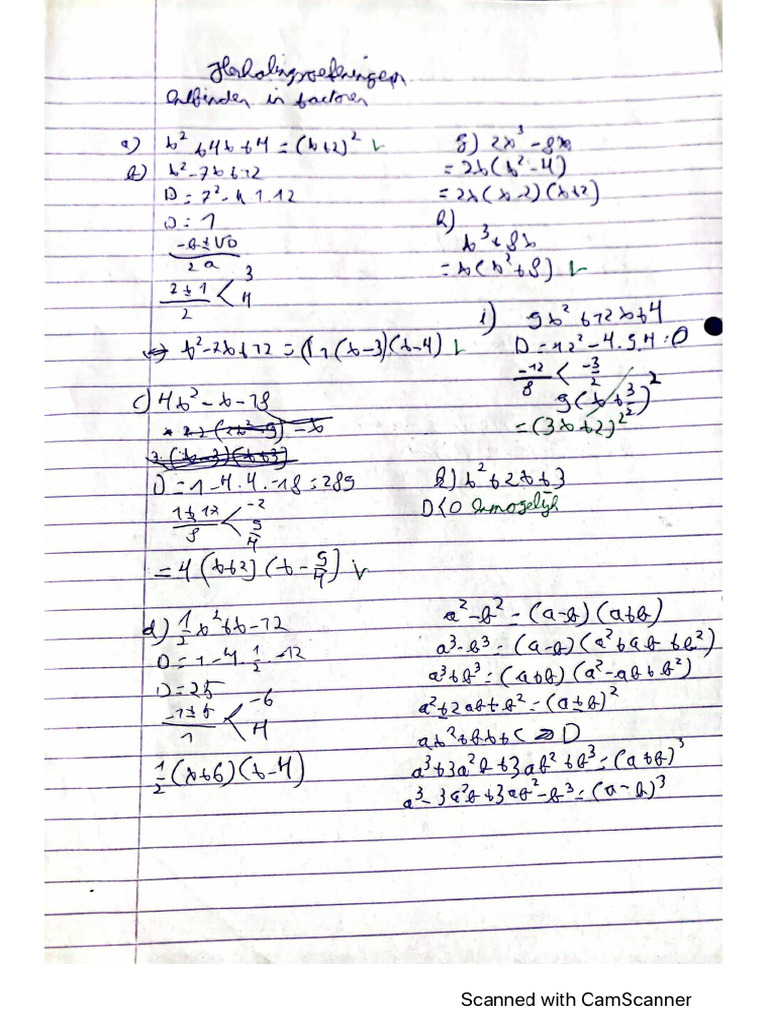 Herhalingsoefeningen
Ontbinden in factoren
a) x² + 4x + 4 = (x+2)² ✓
b) x² - 7x + 12
D = 7² - 4.1.12
D = 1
(-b ± √D) / 2a
(7 ± 1) / 2 < 3
4
<=> x² - 7x + 12 = (x-3)(x-4) ✓
c) 4x² - x - 18
D = 1 - 4.4.-18 = 289
(1 ± 17) / 8 < -2
9/4
= 4(x+2)(x - 9/4) ✓
d) 1/2 x² + x - 12
D = 1 - 4.1/2.-12
D = 25
(-1 ± 5) / 1 < -6
4
1/2 (x+6)(x-4)
g) 2x³ - 8x
= 2x(x² - 4)
= 2x(x-2)(x+2)
h)
x³ + 8x
= x(x² + 8) ✓
i) 9x² + 12x + 4
D = 12² - 4.9.4 = 0
-12/8 < -3/2
9(x + 3/2)²
= (3x+2)²
k) x² + 2x + 3
D<0 Onmogelijk
a² - b² = (a-b)(a+b)
a³ - b³ = (a-b)(a² + ab + b²)
a³ + b³ = (a+b)(a² - ab + b²)
a² ± 2ab + b² = (a±b)²
ax² + bx + c => D
a³ + 3a²b + 3ab² + b³ = (a+b)³
a³ - 3a²b + 3ab² - b³ = (a-b)³
Scanned with CamScanner